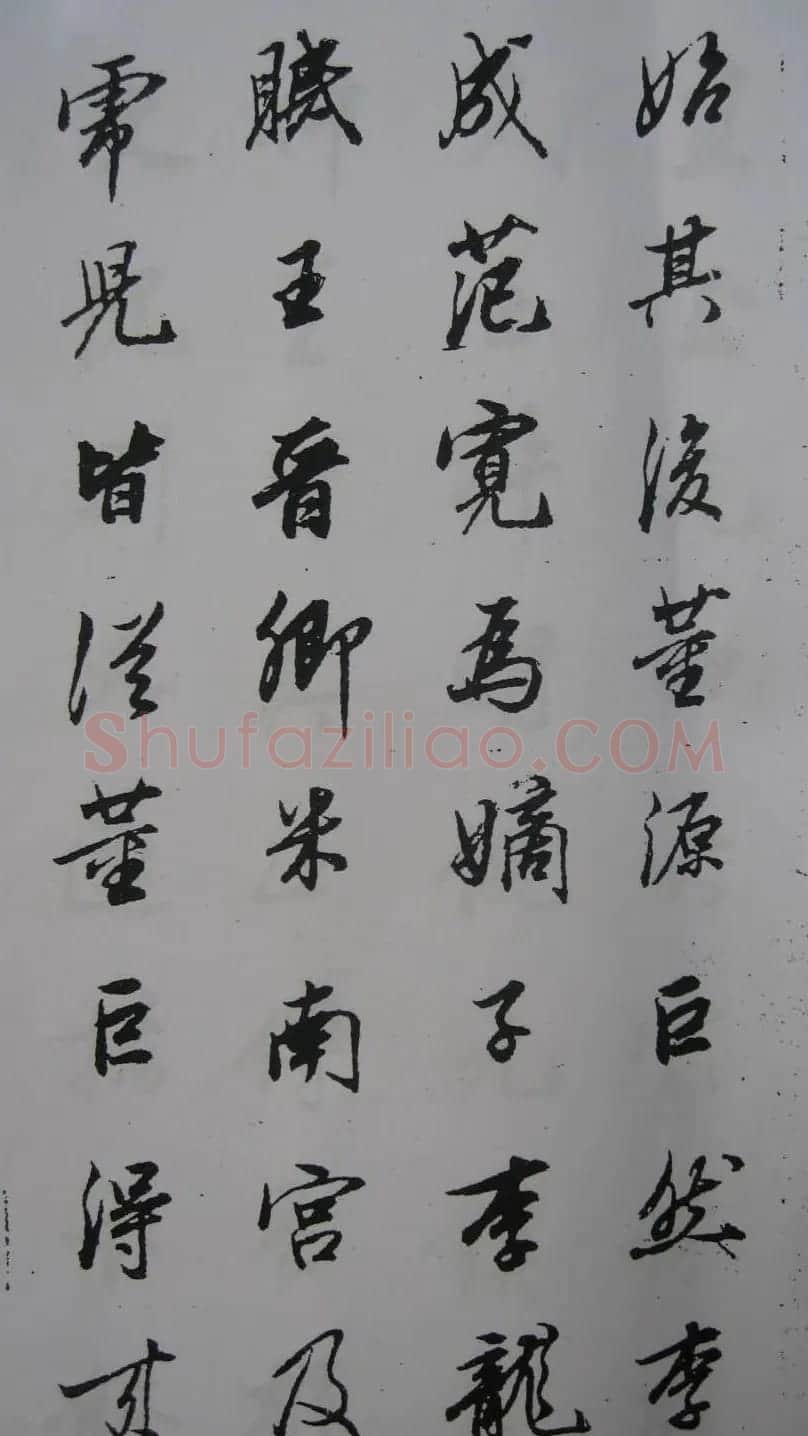 始其後董源巨然李
成范寬為嫡子李龍
眠王晉卿米南宮及
虎兒皆從董巨得來
Shufaziliao.COM